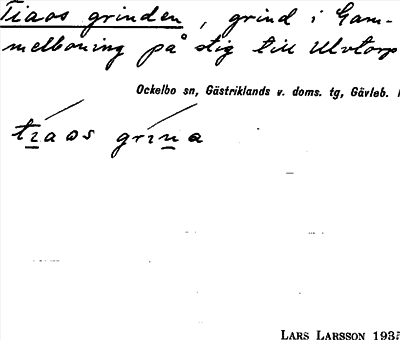 Tiaos grinden, grind i Gam-
melboning på stig till Ulvtorp
Ockelbo sn, Gästriklands v. doms. tg, Gävleb. l
tiaos grina
LARS LARSSON 1935